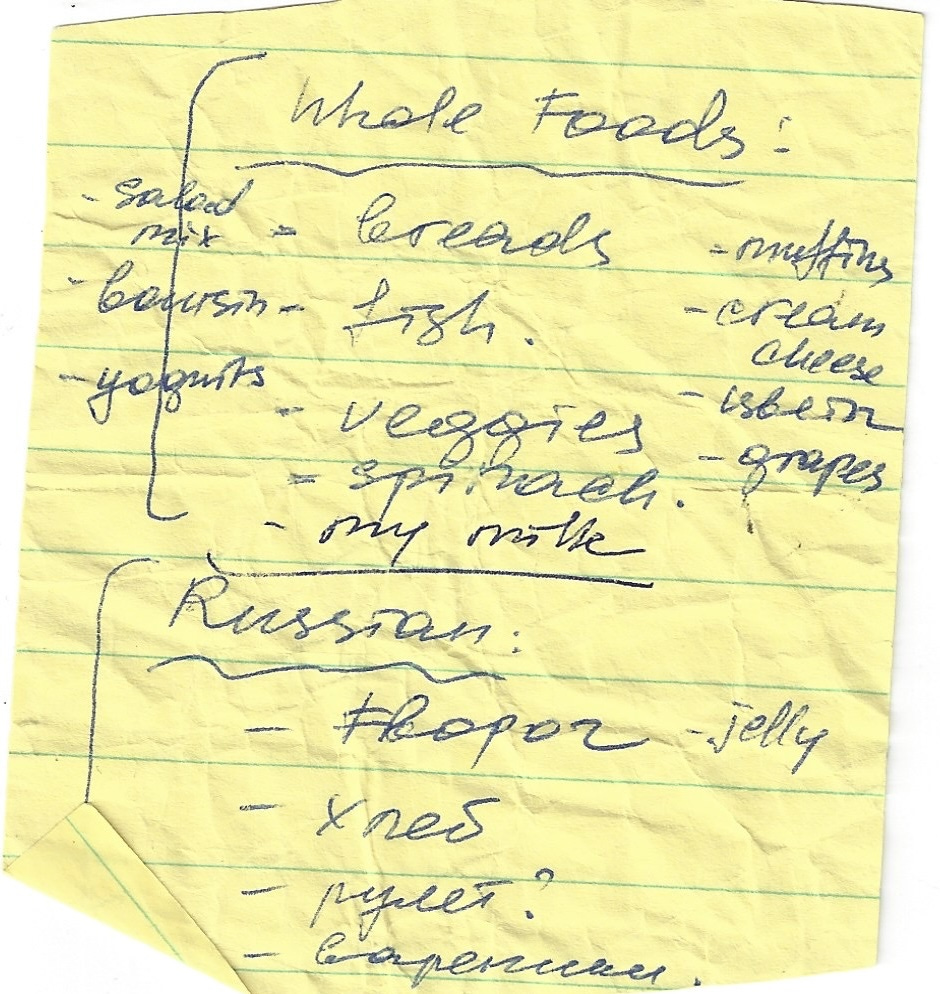 Whole Foods:
- salad
mix
- boursin
- yogurts
- breads
- fish.
- veggies
- spinach.
- my milk
- muffins
- cream
cheese
- цветы
- grapes
Russian:
- творог
- jelly
- хлеб
- рулет?
- вареники.